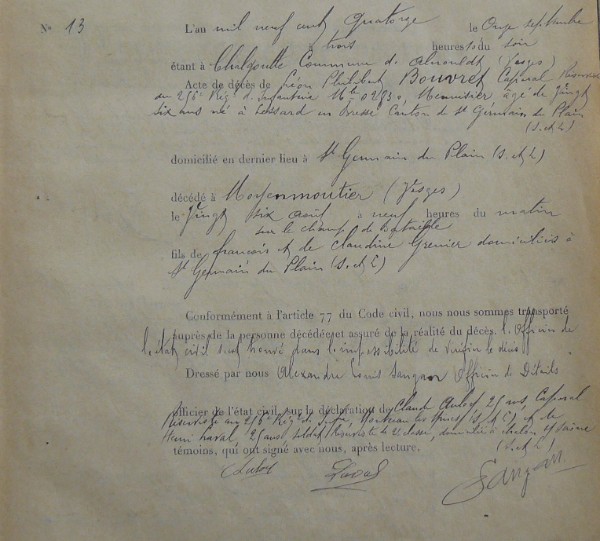 N° 13 L'an mil neuf cent quatorze le onze septembre
à trois heures du soir
étant à Commune d' (Vosges)
Acte de décès de Léon Philibert Bouvret Caporal Réserviste
au 256e Rég. d'Infanterie Mle 0283 Menuisier âgé de Vingt
six ans né à Lessard en Bresse Canton de St Germain du Plain
(S. et L)
domicilié en dernier lieu à St Germain du Plain (S. et L)
décédé à Moyenmoutier (Vosges)
le Vingt six août à neuf heures du matin
sur le champ de bataille
fils de françois et de Claudine Grenier domiciliés à
St Germain du Plain (S. et L)
Conformément à l'article 77 du Code civil, nous nous sommes transporté
auprès de la personne décédée et assuré de la réalité du décès. l'Officier de
l'état civil s'est trouvé dans l'impossibilité de vérifier le décès
Dressé par nous Alexandre Louis Officier de Détails
officier de l'état civil, sur la déclaration de Claude 25 ans, Caporal
Réserviste au Rég. d' Inf. (S. et L) et de
Henri Laval, 25 ans, soldat domicilié à Chalon s/ Saône
(S. et L)
témoins, qui ont signé avec nous, après lecture.
Laval